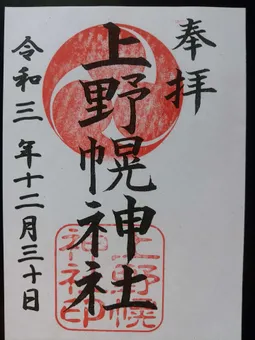 奉拝
上野幌神社
上野幌
神社印
令和三年十二月三十日